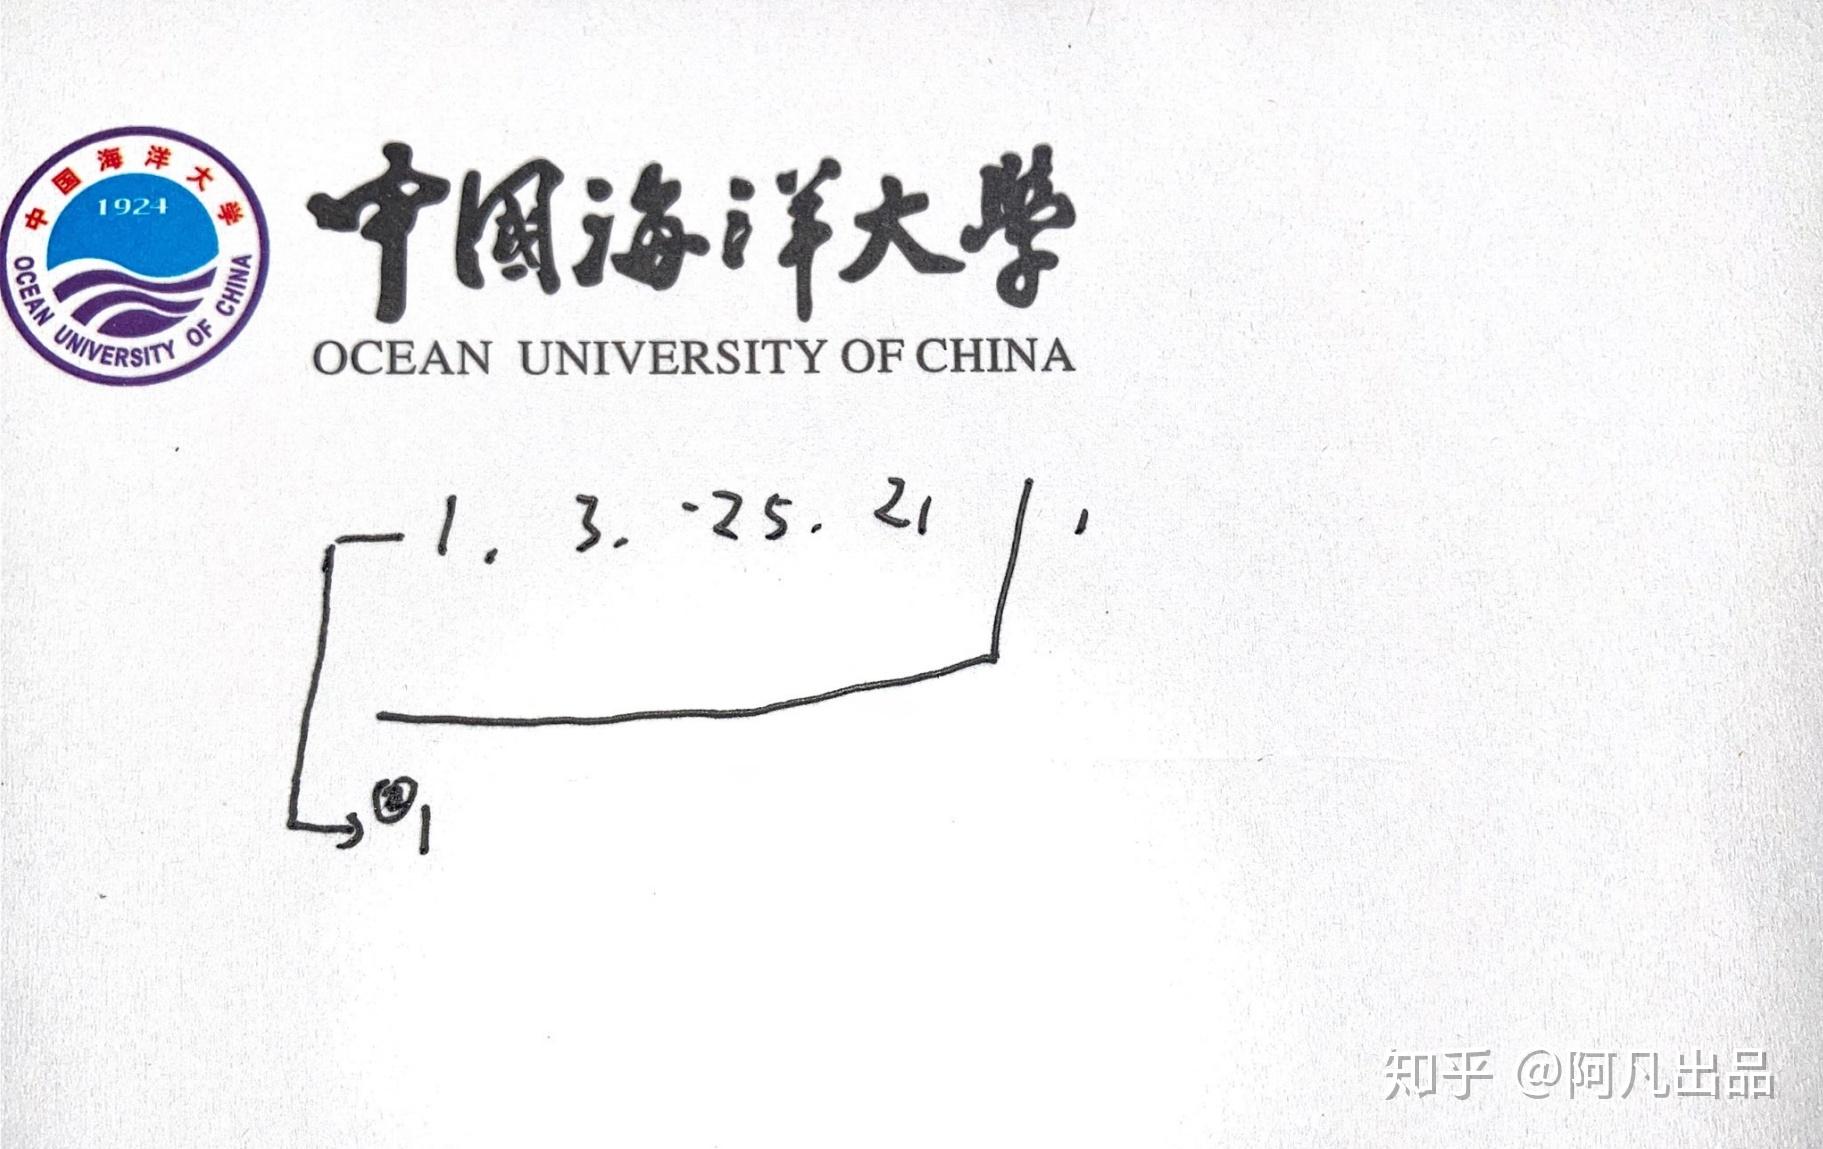 中国海洋大学
1924
OCEAN UNIVERSITY OF CHINA
中國海洋大學
OCEAN UNIVERSITY OF CHINA
1. 3. -25. 21 1
1
知乎 @阿凡出品